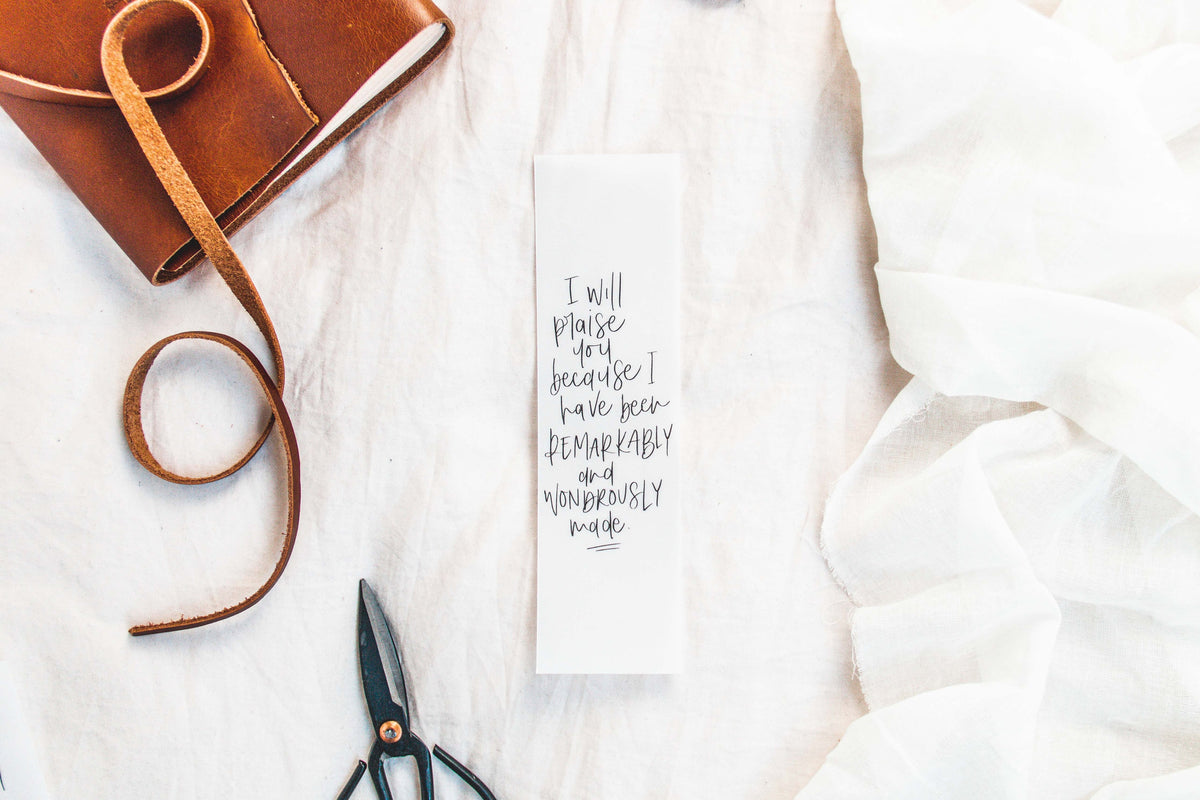 I will
praise
you
because I
have been
REMARKABLY
and
WONDROUSLY
made.